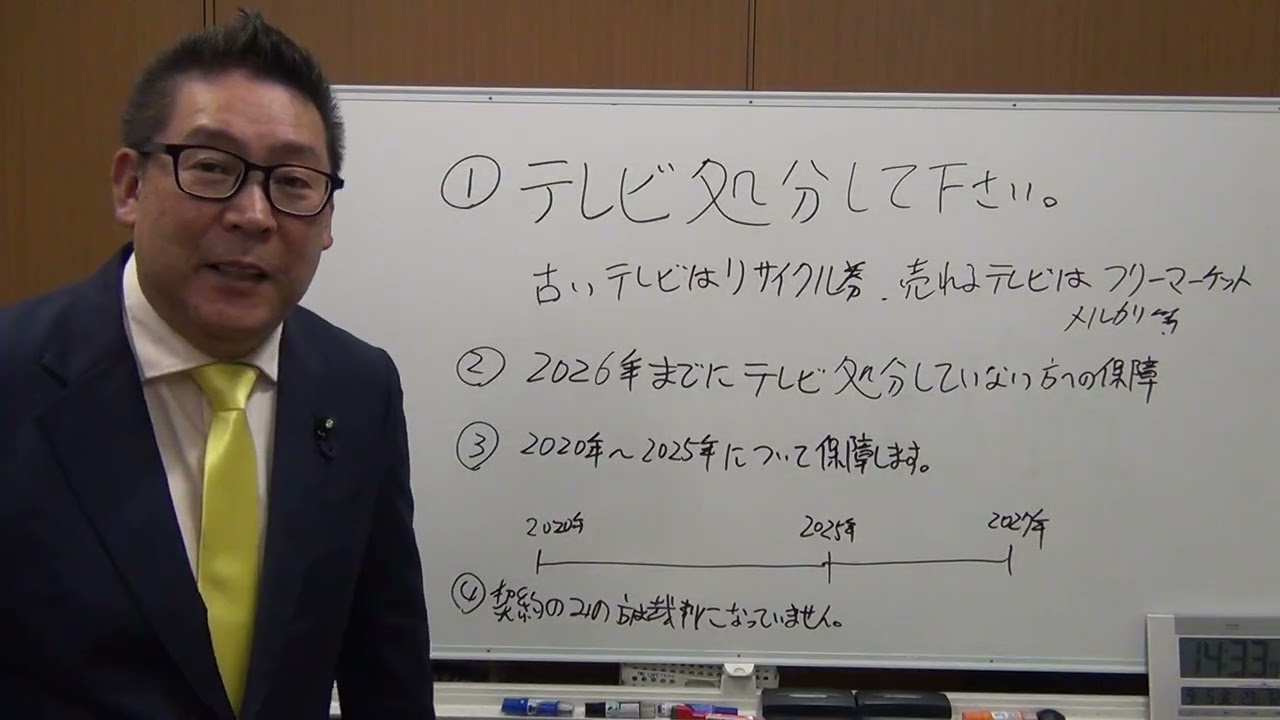 ① テレビ処分して下さい。
古いテレビはリサイクル券、売れるテレビはフリーマーケット
メルカリ等
② 2026年までにテレビ処分していない方への保障
③ 2020年〜2025年について保障します。
2020年 2025年 2027年
④ 契約のみの方は裁判になっていません。
14:33